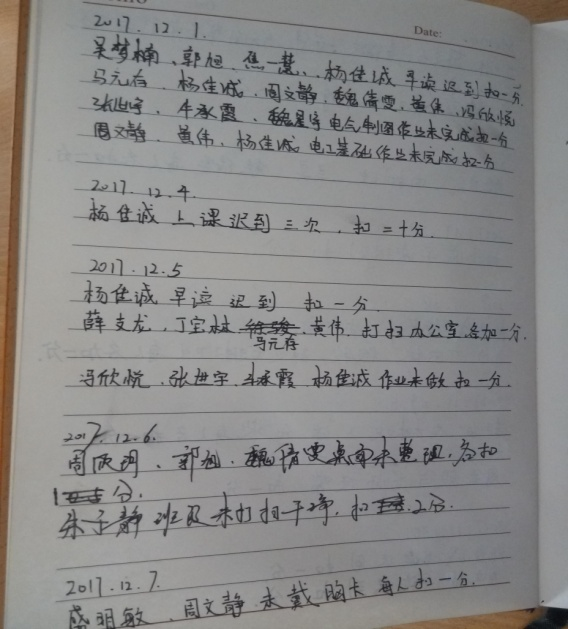 Date:
2017.12.1.
吴梦楠、郭旭、焦一慧、杨佳诚 早读迟到 扣一分.
马元存、杨佳诚、周文静、魏倩雯、黄伟、冯欣悦
张世宇、牛承霞、魏星宇 电气制图作业未完成扣一分
周文静、黄伟、杨佳诚 电工基础作业未完成 扣一分
2017.12.4.
杨佳诚 上课迟到 三次,扣二十分.
2017.12.5
杨佳诚 早读 迟到 扣一分.
薛支龙、丁宝林、黄伟、打扫办公室,各加一分.
马元存
冯欣悦、张世宇、牛承霞 杨佳诚 作业未做 扣一分.
2017.12.6.
周欣玥、郭旭、魏倩雯桌面未整理,各扣
1分.
朱子静 班级未打扫干净,扣2分.
2017.12.7.
盛明敏、周文静 未戴胸卡 每人扣一分.